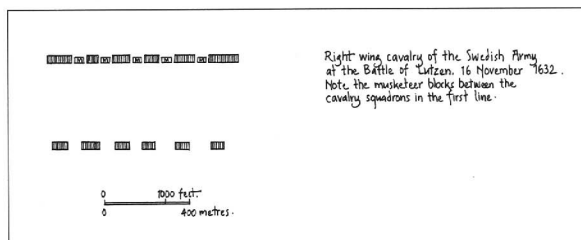 Right wing cavalry of the Swedish Army
at the Battle of Lutzen. 16 November 1632.
Note the musketeer blocks between the
cavalry squadrons in the first line.
0 1000 feet.
0 400 metres.